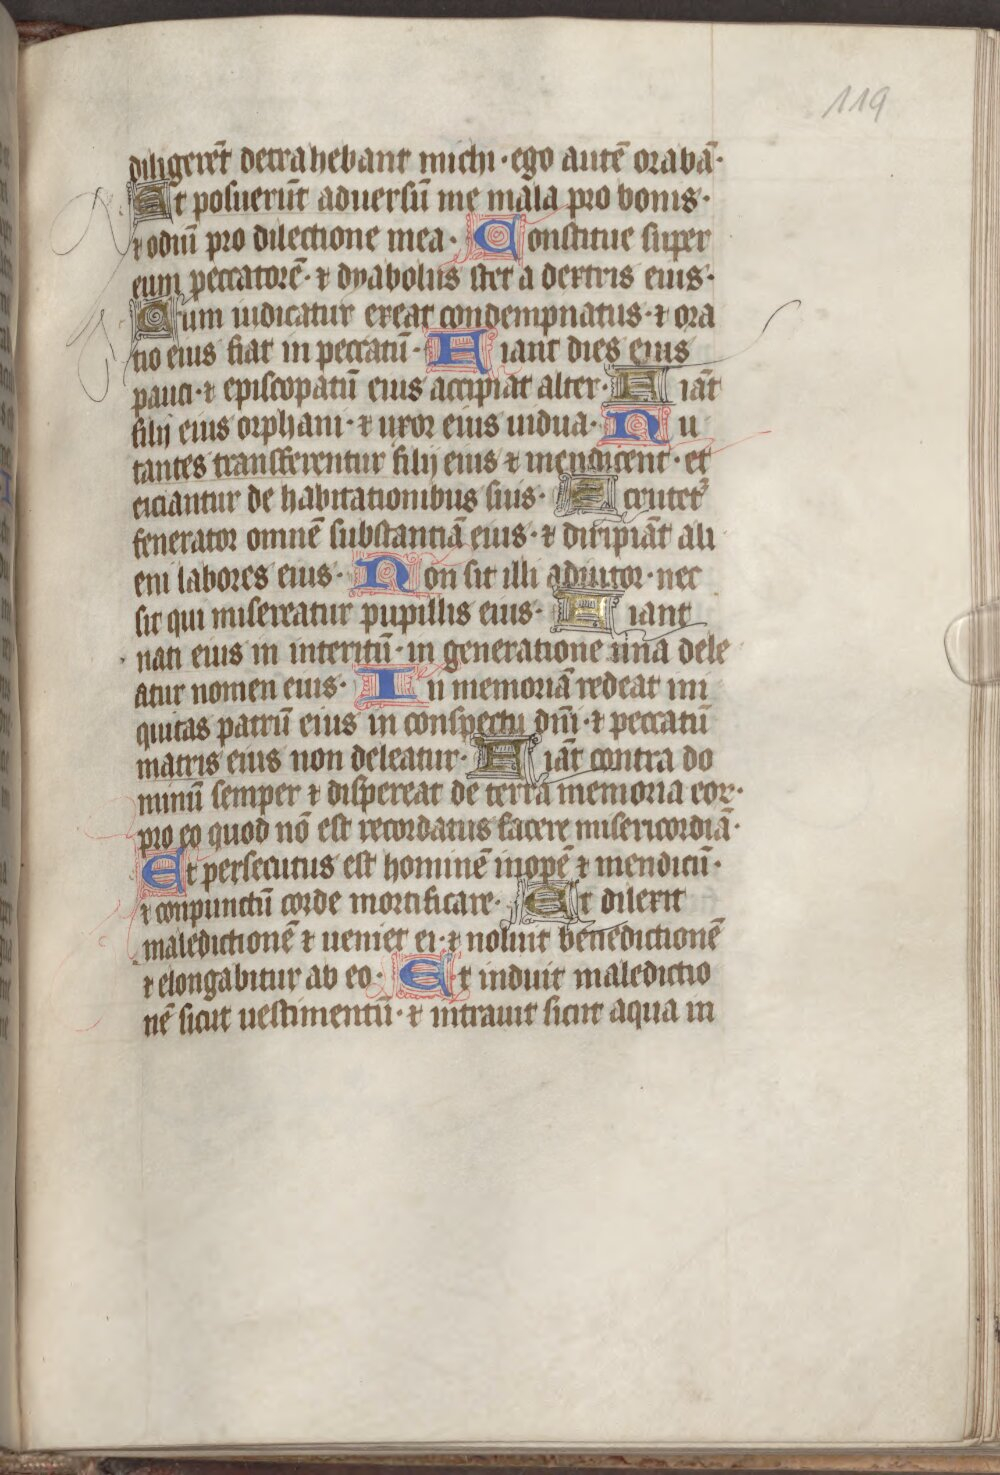 119
diligerēt detrahebant michi · ego autē orabā ·
Et posuerūt aduersū me mala pro bonis ·
⁊ odiū pro dilectione mea · Constitue super
eum peccatorē · ⁊ dyabolus stet a dextris eius ·
Cum iudicatur exeat condempnatus · ⁊ ora
tio eius fiat in peccatū · Fiant dies eius
pauci · ⁊ episcopatū eius accipiat alter · Fiāt
filij eius orphani · ⁊ uxor eius uidua · Nu
tantes transferentur filij eius ⁊ mendicent · et
eiciantur de habitationibus suis · Scrutetꝛ
fenerator omnē substantiā eius · ⁊ diripiāt ali
eni labores eius · Non sit illi adiutor · nec
sit qui misereatur pupillis eius · Fiant
nati eius in interitū · in generatione una dele
atur nomen eius · In memoriā redeat ini
quitas patrū eius in conspectu dn̄i · ⁊ peccatū
matris eius non deleatur · Fiāt contra do
minū semper ⁊ dispereat de terra memoria eoꝝ ·
pro eo quod nō est recordatus facere misericordiā ·
Et persecutus est hominē inopē ⁊ mendicū ·
⁊ conpunctū corde mortificare · Et dilexit
maledictionē ⁊ ueniet ei · ⁊ noluit benedictionē
⁊ elongabitur ab eo · Et induit maledictio
nē sicut uestimentū · ⁊ intrauit sicut aqua in